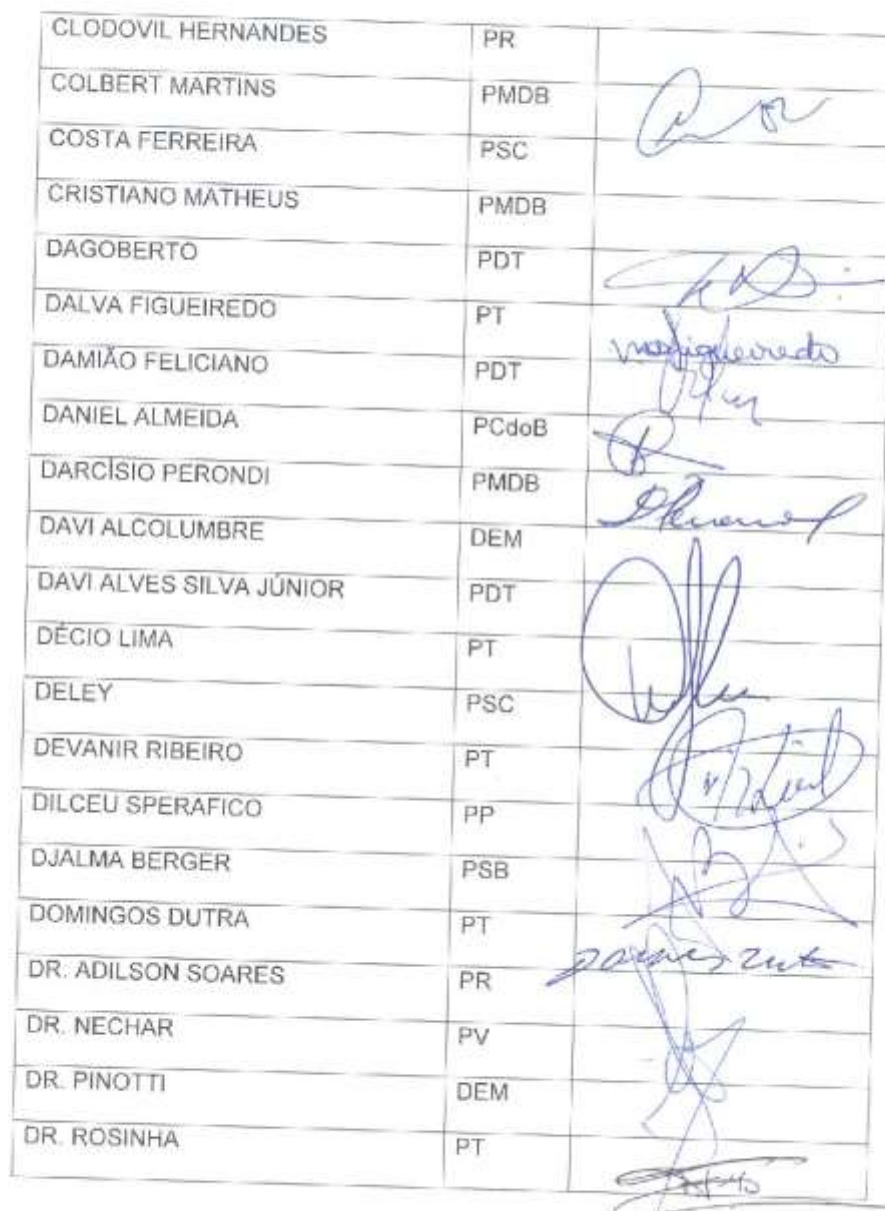 CLODOVIL HERNANDES PR
COLBERT MARTINS PMDB
COSTA FERREIRA PSC
CRISTIANO MATHEUS PMDB
DAGOBERTO PDT
DALVA FIGUEIREDO PT
DAMIÃO FELICIANO PDT
DANIEL ALMEIDA PCdoB
DARCÍSIO PERONDI PMDB
DAVI ALCOLUMBRE DEM
DAVI ALVES SILVA JÚNIOR PDT
DÉCIO LIMA PT
DELEY PSC
DEVANIR RIBEIRO PT
DILCEU SPERAFICO PP
DJALMA BERGER PSB
DOMINGOS DUTRA PT
DR. ADILSON SOARES PR
DR. NECHAR PV
DR. PINOTTI DEM
DR. ROSINHA PT